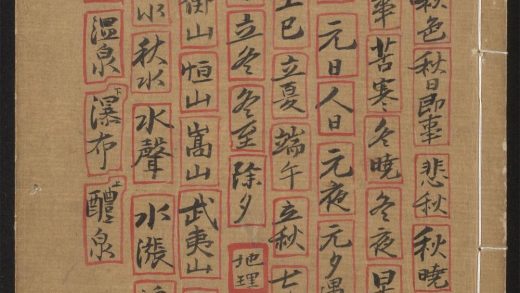 秋色 秋日即事 悲秋 秋曉
事 苦寒 冬曉 冬夜
元日 人日 元夜 元夕
上巳 立夏 端午 立秋 七
立冬 冬至 除夕 地理
山 恒山 嵩山 武夷山
水 秋水 水聲 水漲
溫泉 瀑布 醴泉